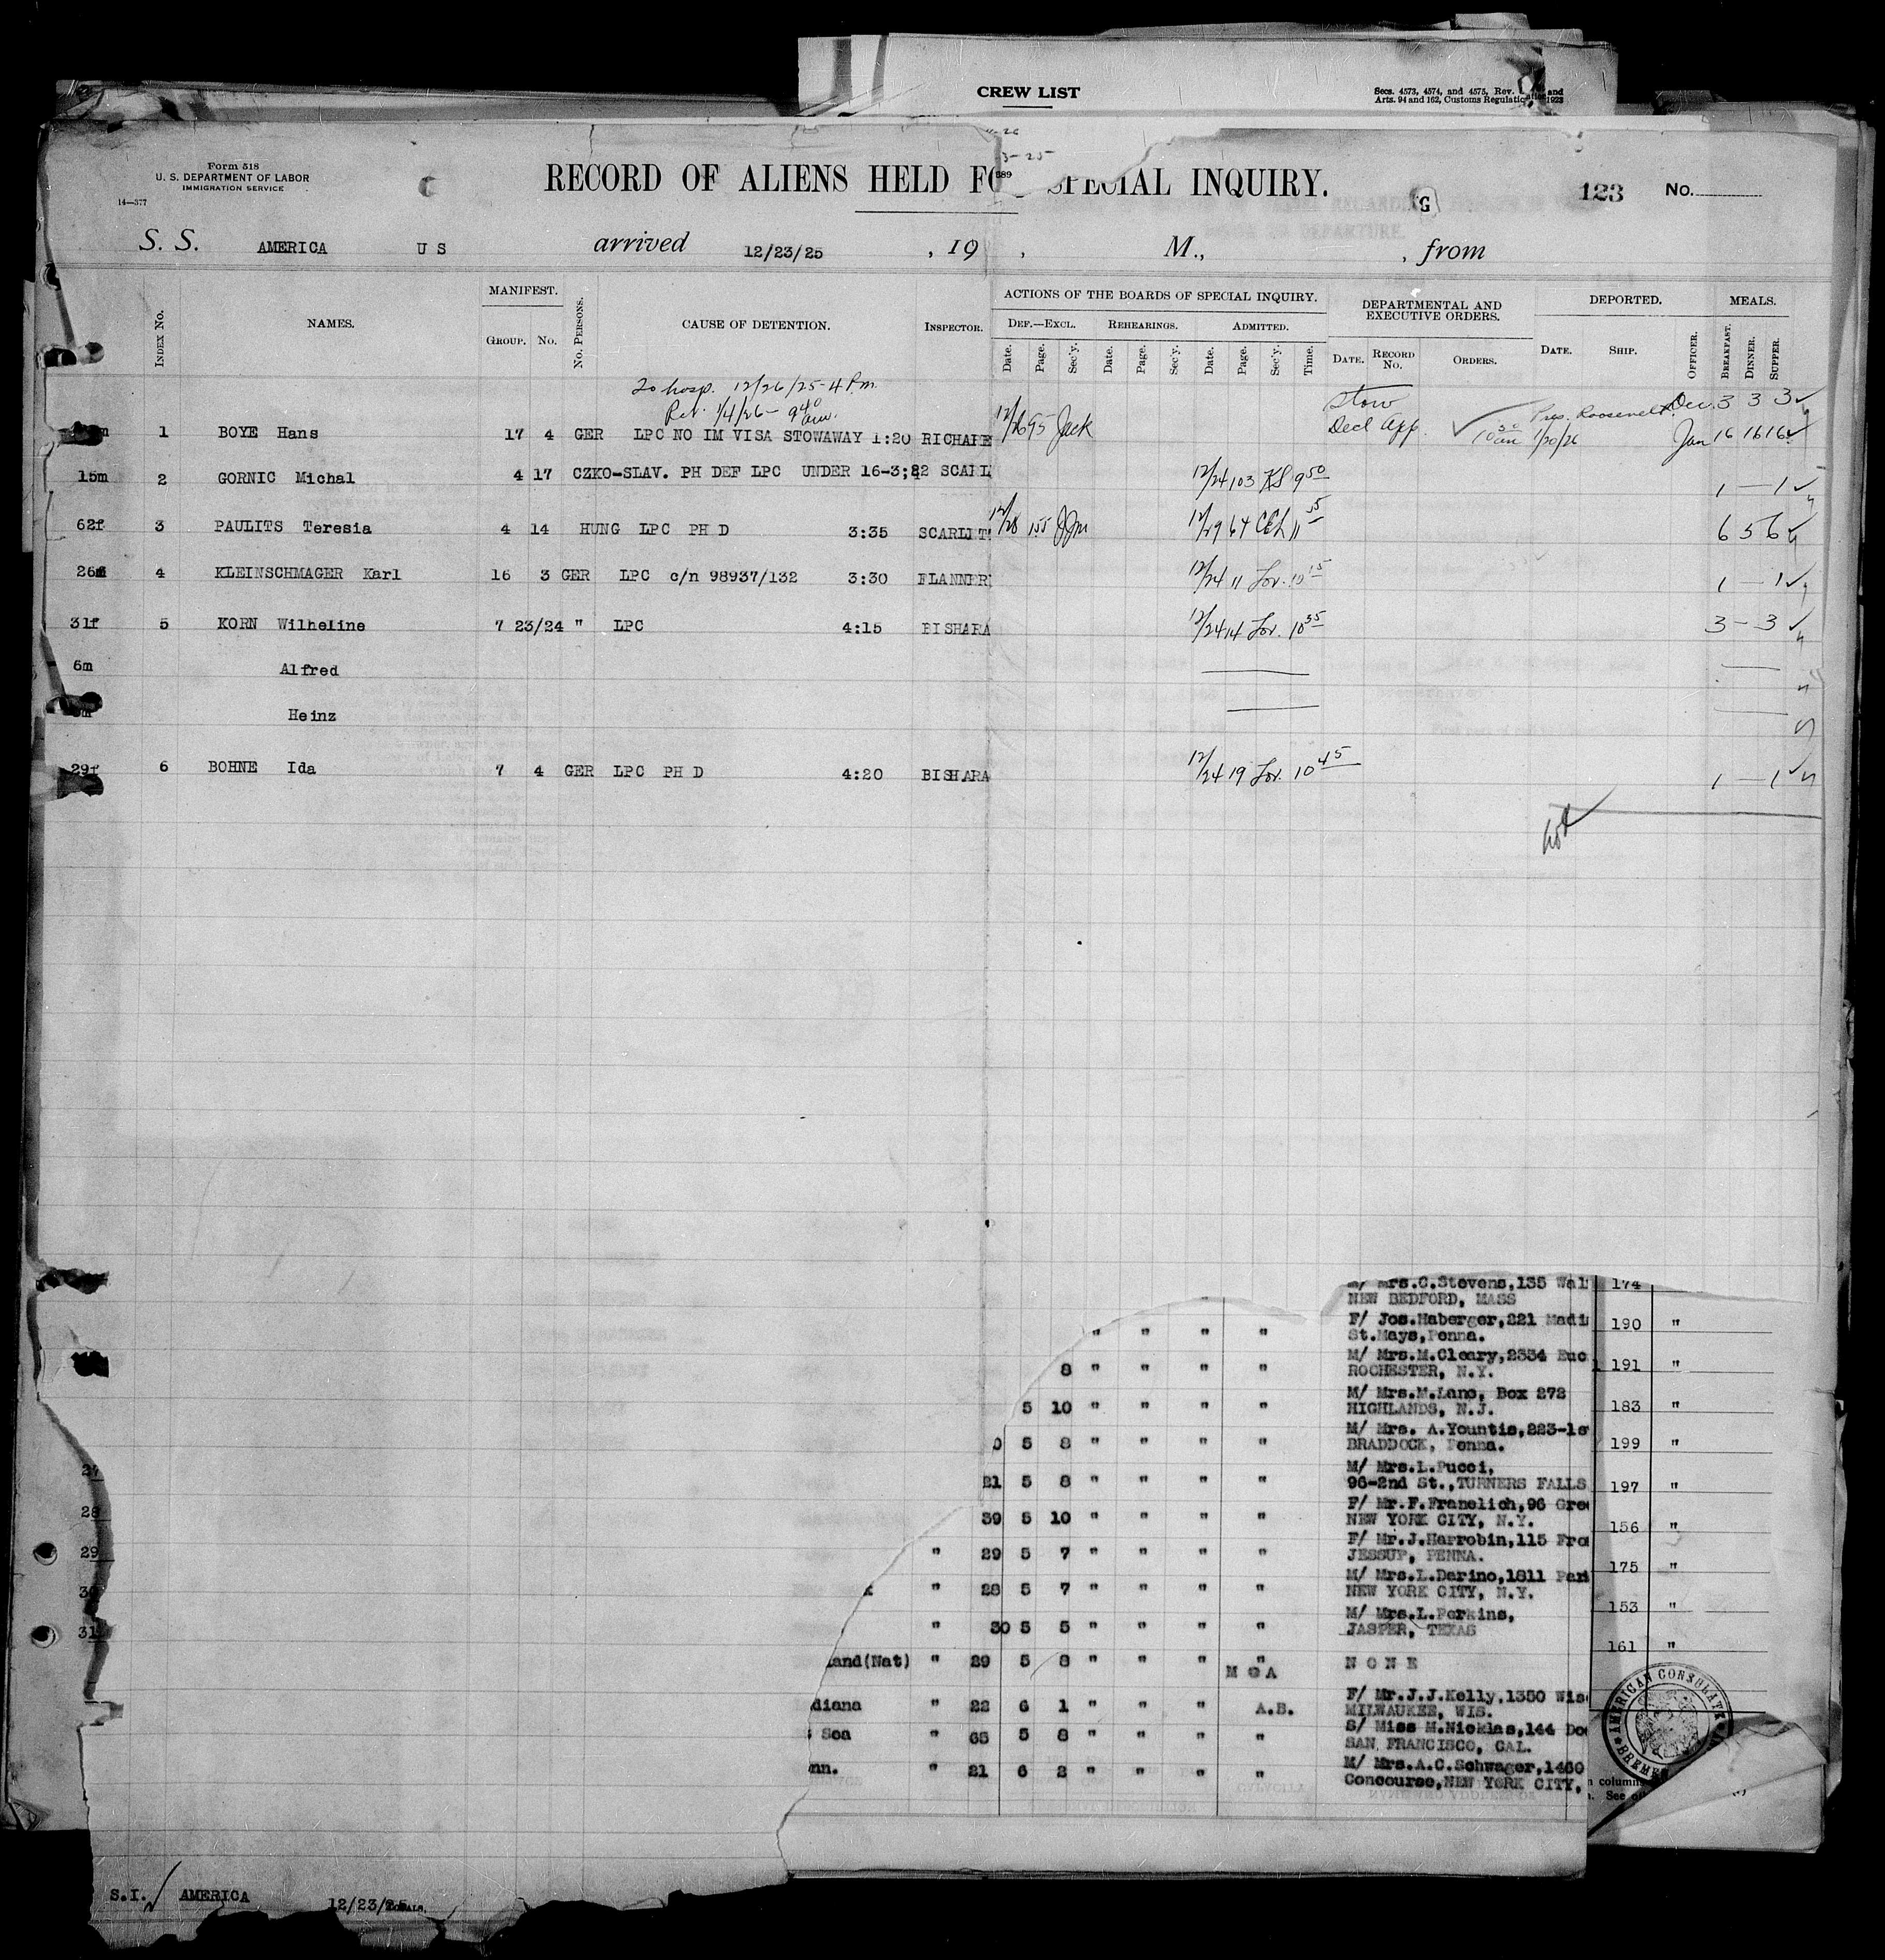 CREW LIST
Secs. 4573, 4574, and 4575, Rev. and
Arts. 94 and 162, Customs Regulations 1923
Form 518
U. S. DEPARTMENT OF LABOR
IMMIGRATION SERVICE
14—377
RECORD OF ALIENS HELD FOR SPECIAL INQUIRY.
G
123 No.
S. S. AMERICA U S arrived 12/23/25 , 19 , M., , from
INDEX No. NAMES. MANIFEST. GROUP. No. No. PERSONS. CAUSE OF DETENTION. INSPECTOR. ACTIONS OF THE BOARDS OF SPECIAL INQUIRY. DEPARTMENTAL AND EXECUTIVE ORDERS. DEPORTED. MEALS.
DEF.—EXCL. REHEARINGS. ADMITTED.
Date. Page. Sec'y. Date. Page. Sec'y. Date. Page. Sec'y. Time. DATE. RECORD No. ORDERS. DATE. SHIP. OFFICER. BREAKFAST. DINNER. SUPPER.
To hosp. 12/26/25 - 4 P.m. Stow Dec. 3 3 3
Ret. 1/4/26 - 9 40 am.
1 BOYE Hans 17 4 GER LPC NO IM VISA STOWAWAY 1:20 12/26 95 Jack Decl App. 10 30 am 1/20/26 Pres. Roosevelt Jan 16 16 16
15m 2 GORNIC Michal 4 17 CZKO-SLAV. PH DEF LPC UNDER 16-3; 12/24 103 KS 9 50 1 — 1
62f 3 PAULITS Teresia 4 14 HUNG LPC PH D 3:35 SCARLIT 12/28 155 JJM 12/29 64 CEL 11 55 6 5 6
26m 4 KLEINSCHMAGER Karl 16 3 GER LPC c/n 98937/132 3:30 FLANNER 12/24 11 Lov. 10 15 1 — 1
31f 5 KORN Wilheline 7 23/24 " LPC 4:15 BISHARA 12/24 14 Lov. 10 35 3 — 3
6m Alfred
Heinz
29f 6 BOHNE Ida 7 4 GER LPC PH D 4:20 BISHARA 12/24 19 Lov. 10 45 1 — 1
M/ Mrs.C.Stevens,135 Wal 174
NEW BEDFORD, MASS
" " " " F/ Jos.Haberger,221 Madi 190 "
St.Mays,Penna.
8 " " " " M/ Mrs.M.Cleary,2334 Euc 191 "
ROCHESTER, N.Y.
5 10 " " " " M/ Mrs.M.Lano, Box 272 183 "
HIGHLANDS, N.J.
0 5 8 " " " " M/ Mrs. A.Yountis,223-1s 199 "
BRADDOCK, Penna.
27 21 5 8 " " " " M/ Mrs.L.Pucci, 197 "
96-2nd St.,TURNERS FALLS
28 39 5 10 " " " " F/ Mr.F.Franelich,96 Gre 156 "
NEW YORK CITY, N.Y.
29 " 29 5 7 " " " " F/ Mr.J.Harrobin,115 Fro 175 "
JESSUP, PENNA.
30 " 28 5 7 " " " " M/ Mrs.L.Darino,1811 Par 153 "
NEW YORK CITY, N.Y.
31 " 30 5 5 " " " " M/ Mrs.L.Perkins, 161 "
JASPER, TEXAS
land(Nat) " 29 5 8 " " " " N O N E
M O A
diana " 22 6 1 " " " A.B. F/ Mr.J.J.Kelly,1350 Wis
MILWAUKEE, WIS.
Sea " 65 5 8 " " " " S/ Miss M.Nicklas,144 Do
SAN FRANCISCO, CAL.
nn. " 21 6 2 " " " " M/ Mrs.A.C.Schwager,1460
Concourse,NEW YORK CITY,
AMERICAN CONSULATE BREMEN
columns
See
S.I. AMERICA 12/23/25